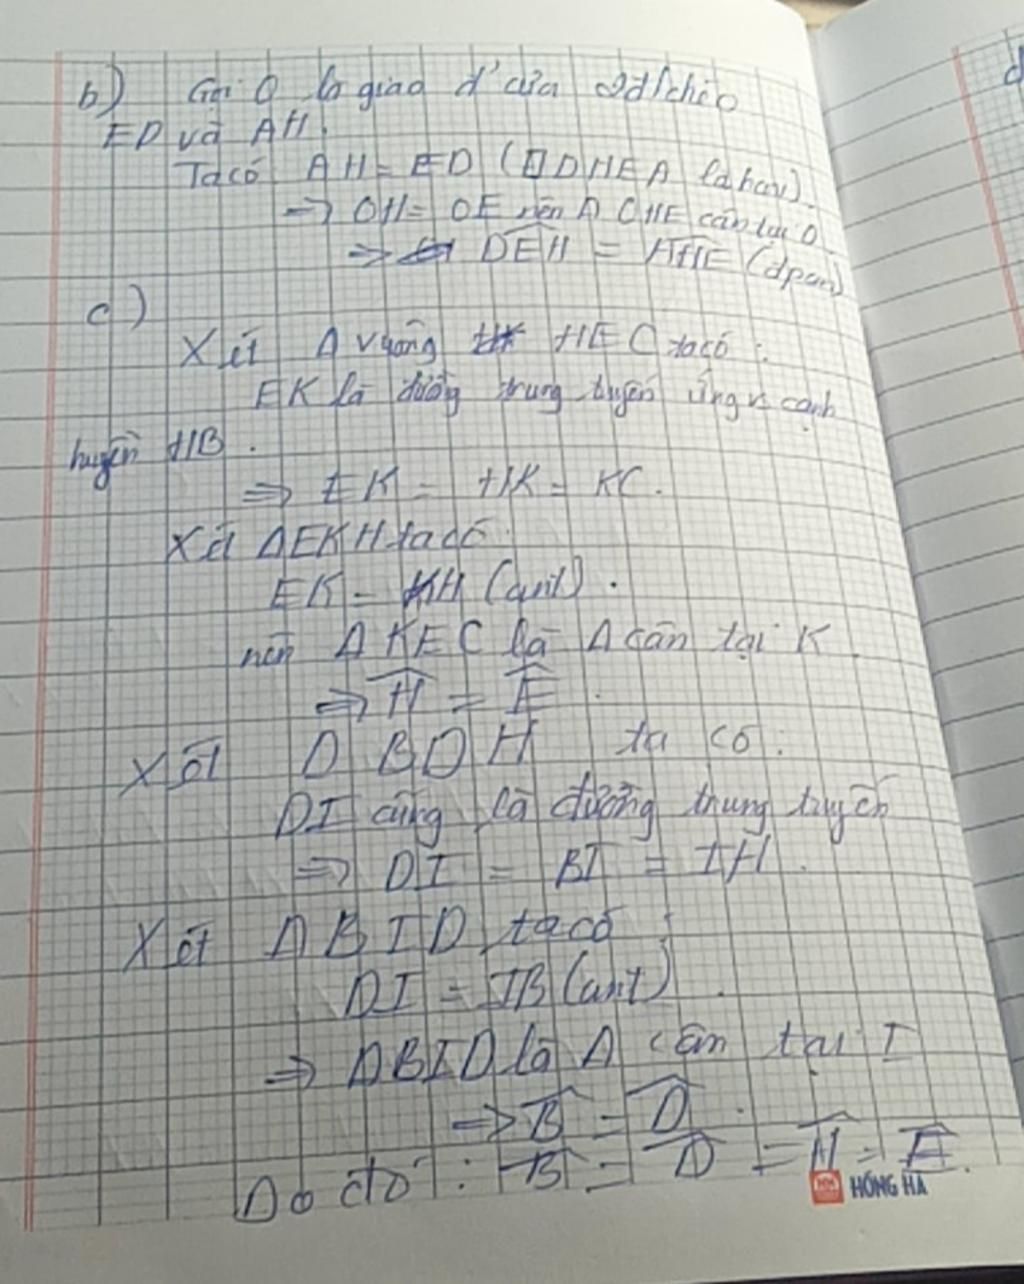 b) Gọi O là giao đ' của 2đ/chéo
ED và AH.
Ta có AH = ED (□DHEA là hcn).
=> OH = OE nên Δ OHE cân tại O.
=> DEH = AHE (đpcm)
c)
Xét Δ vuông HEC ta có:
EK là đường trung tuyến ứng v cạnh
huyền HB.
=> EK = HK = KC.
Xét ΔEKH ta có:
EK = KH (cmt).
nên Δ KEC là Δ cân tại K.
=> H = E.
Xét Δ BDH ta có:
DI cũng là đường trung tuyến
=> DI = BI = IH.
Xét Δ BID ta có:
DI = IB (cmt).
=> ΔBID là Δ cân tại I
=> B = D.
Do đó: B = D = H = E.
HỒNG HÀ